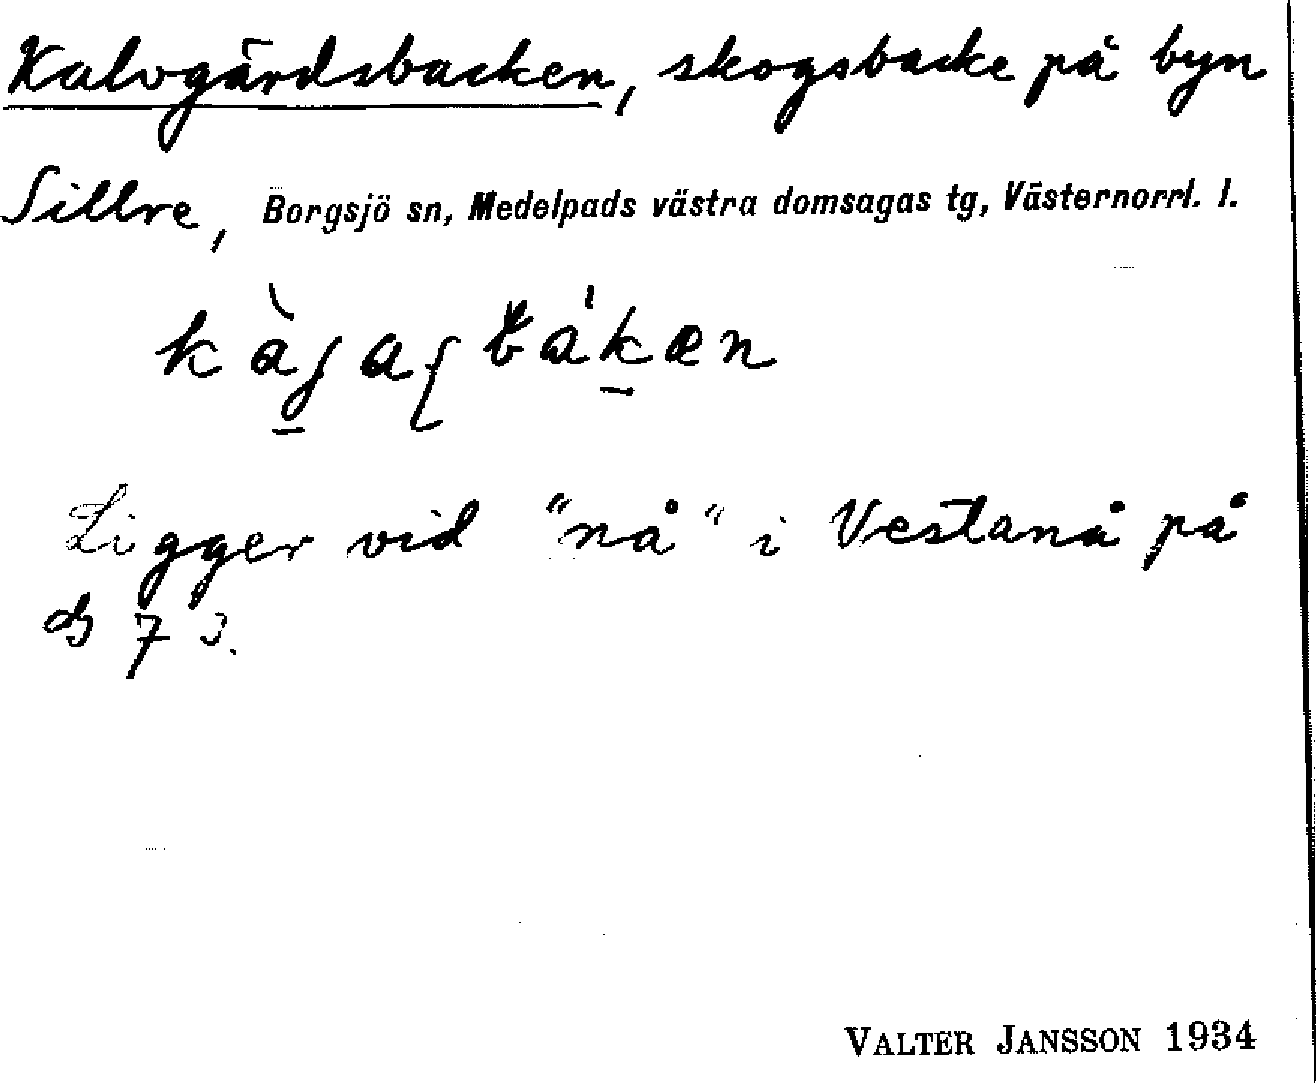 Kalvgårdsbacken, skogsbacke på byn
Sillre, Borgsjö sn, Medelpads västra domsagas tg, Västernorrl. l.
Ligger vid "nå" i Vestanå på
73.
VALTER JANSSON 1934